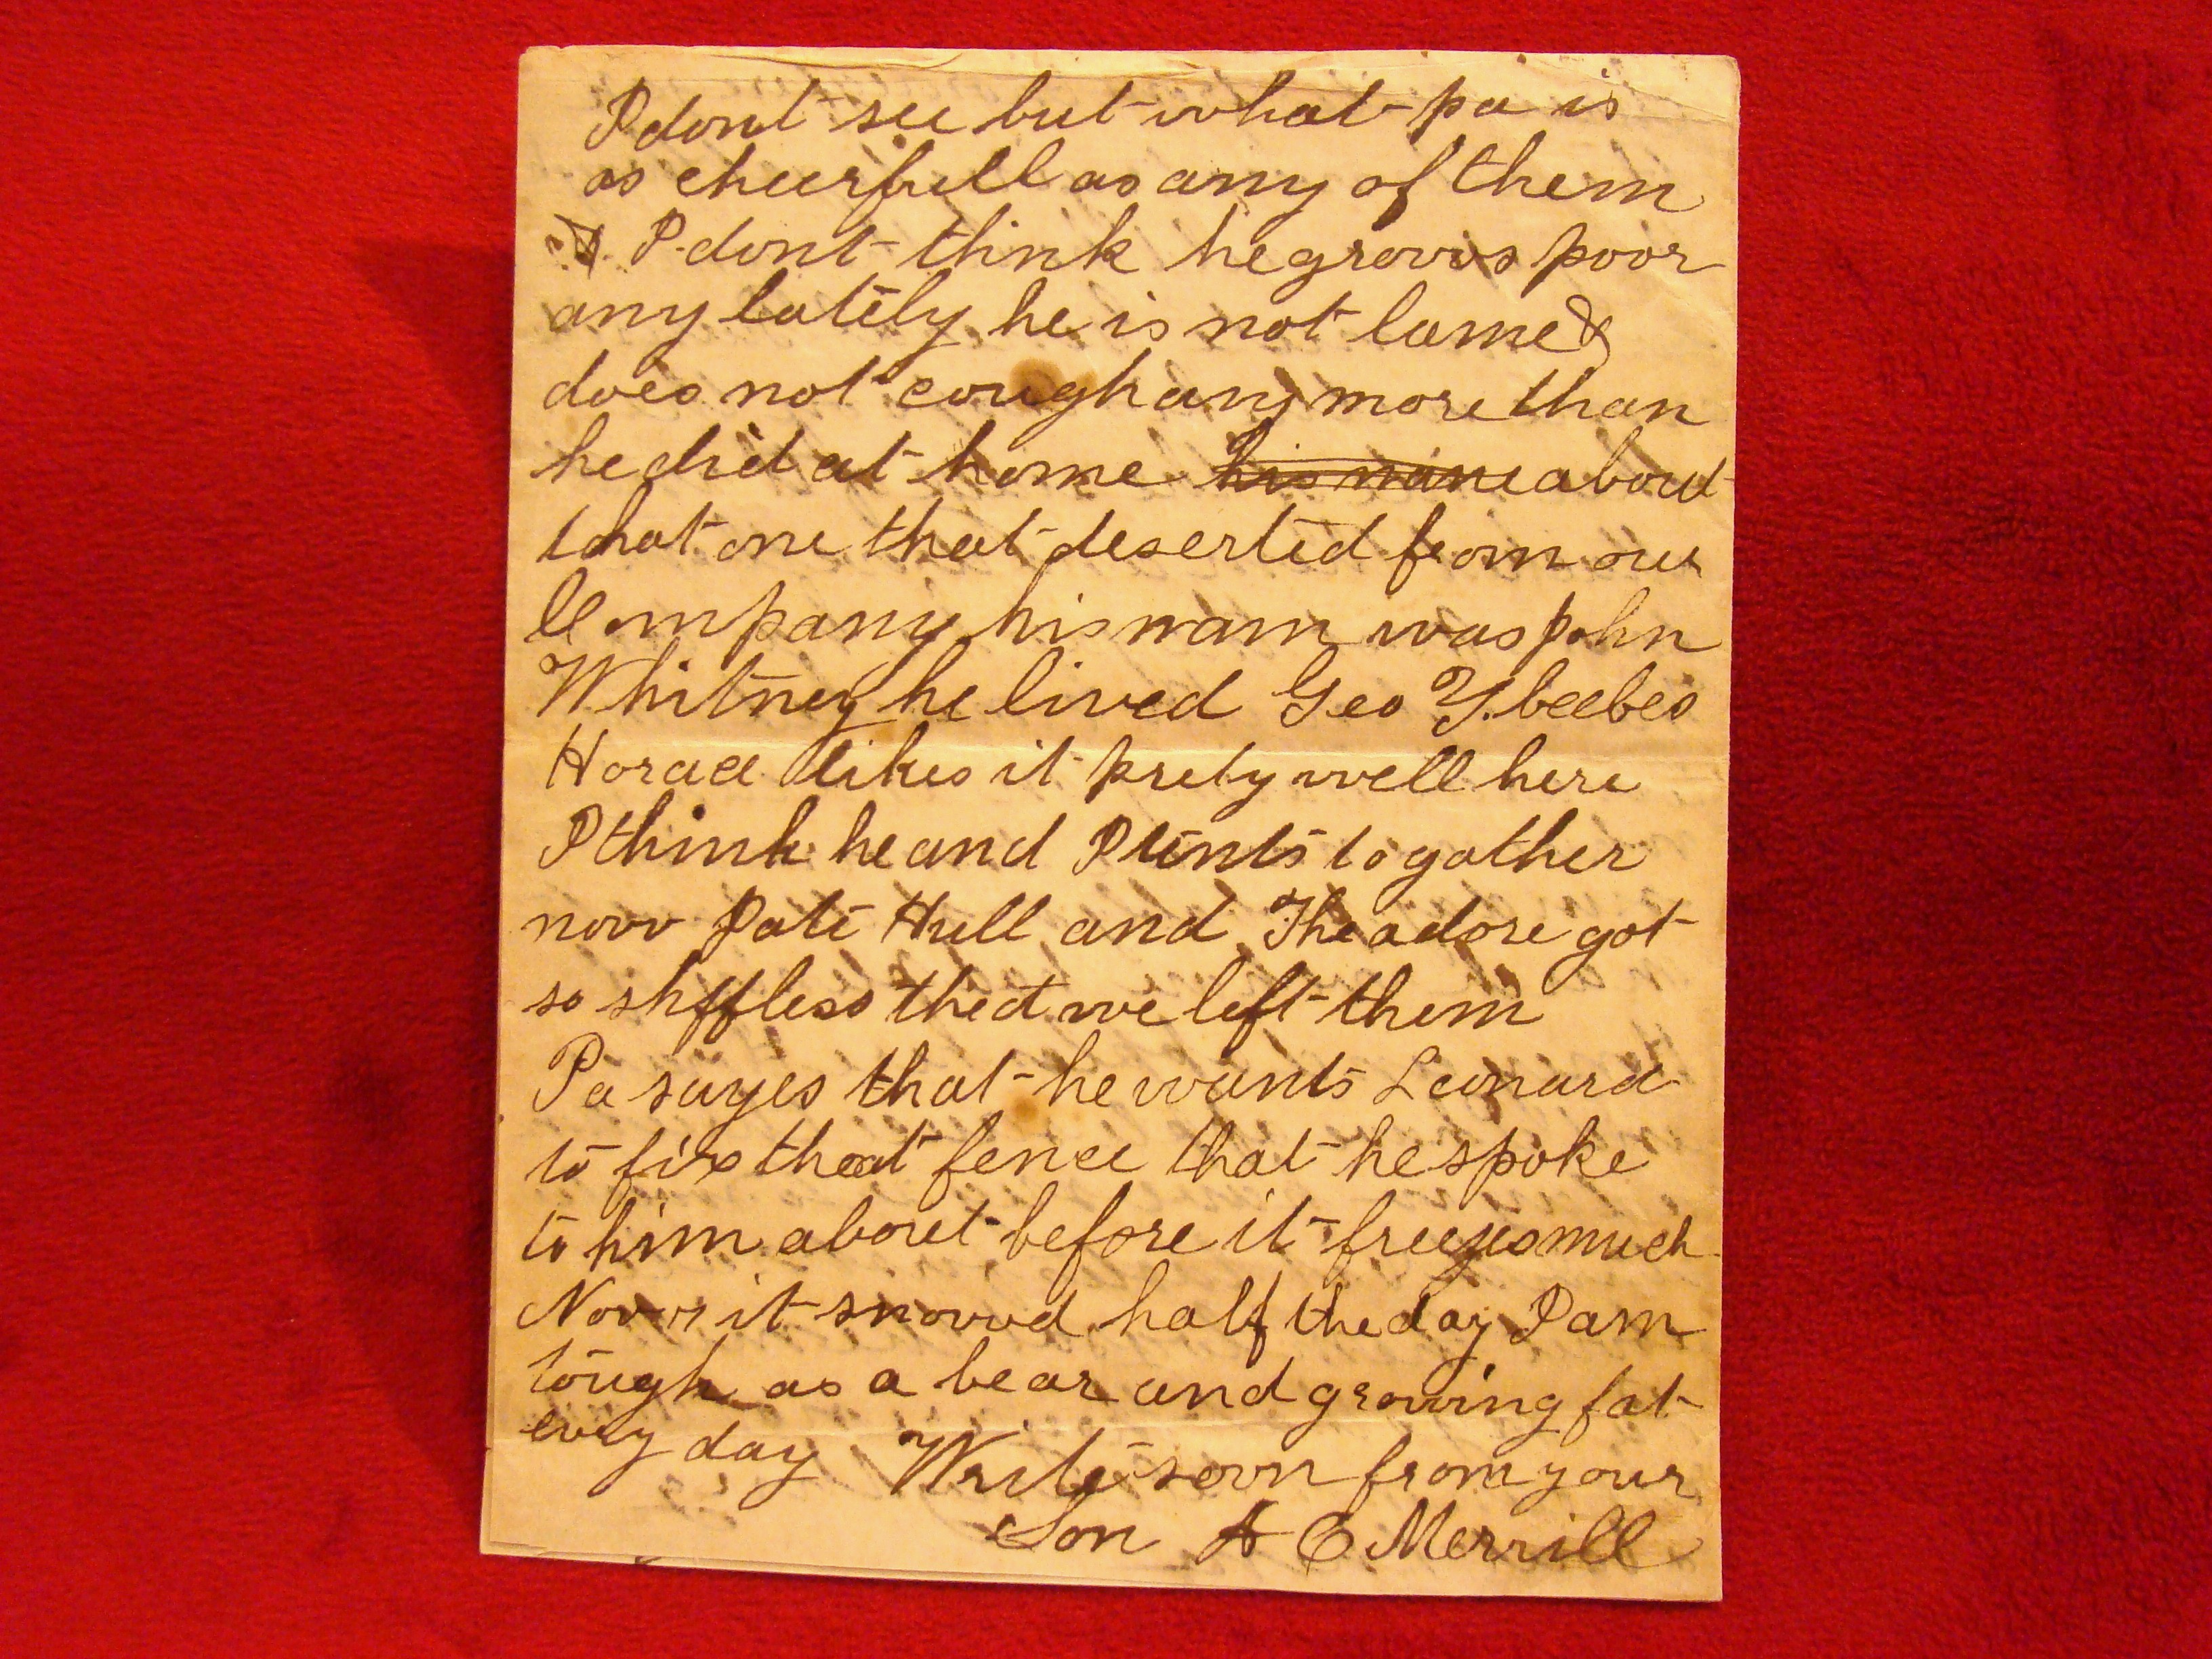 I dont see but what pa is
as cheerfull as any of them
& I dont think he grows poor
any lately he is not lame &
does not cough any more than
he did at home his name about
that one that deserted from our
Company his nam was John
Whitney he lived Geo Y. beebes
Horace likes it prety well here
I think he and I tents togather
now Pate Hull and Theadore got
so shffless that we left them
Pa sayes that he wants Leonard
to fix that fence that he spoke
to him about before it freezes much
Nov 7 it snowd half the day I am
tough as a bear and growing fat
every day Write soon from your
Son A C Merrill